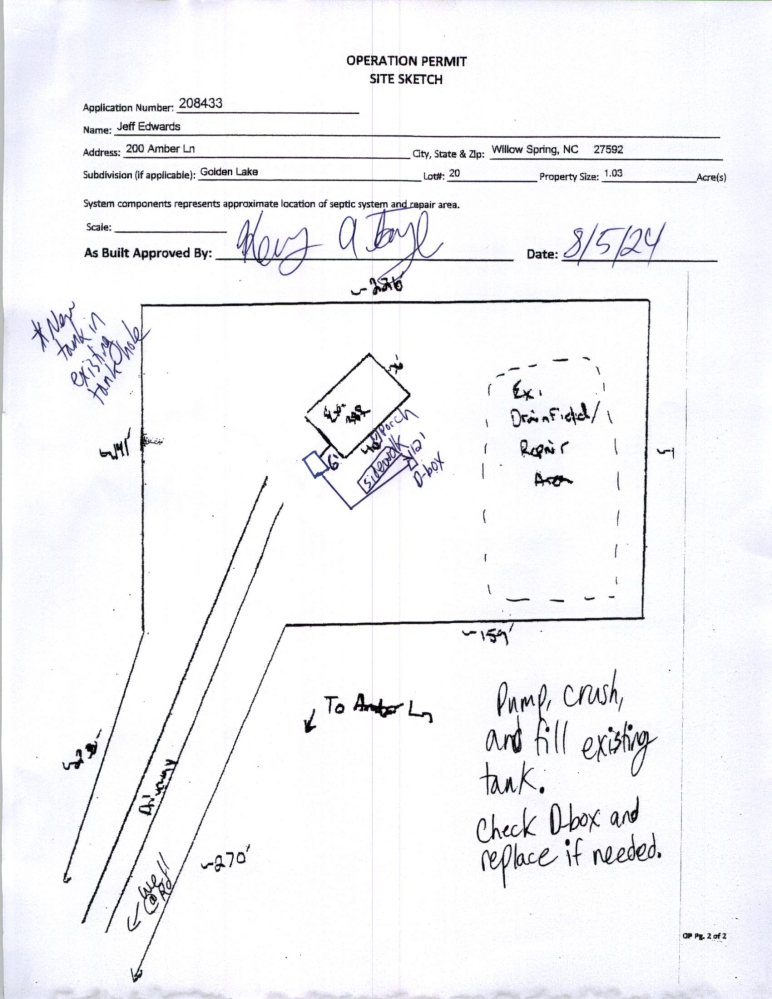 OPERATION PERMIT
SITE SKETCH
Application Number: 208433
Name: Jeff Edwards
Address: 200 Amber Ln City, State & Zip: Willow Spring, NC 27592
Subdivision (if applicable): Golden Lake Lot#: 20 Property Size: 1.03 Acre(s)
System components represents approximate location of septic system and repair area.
Scale:
As Built Approved By: Date: 8/5/24
* New
tank in
existing
tank hole
~141'
6'
Porch
Sidewalk
12'
D-box
Ex.
Drainfield/
Repair
Area
~159'
To Amber Ln
Driveway
Well
@ Rd
~270'
Pump, crush,
and fill existing
tank.
Check D-box and
replace if needed.
OP Pg. 2 of 2